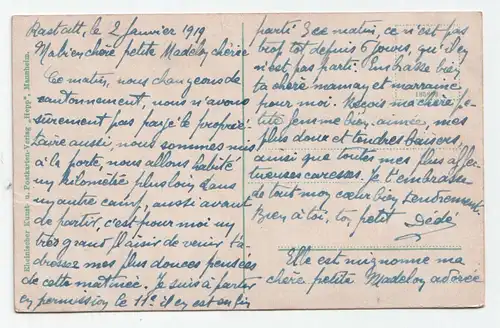 Rastatt, le 2 Janvier 1919
Ma bien chère petite Madelon chérie
Ce matin, nous changeons de
cantonnement, nous n'avons
sûrement pas payé le proprié-
taire aussi, nous sommes mis
à la porte, nous allons habité
un kilomètre plus loin dans
un autre camp, aussi avant
de partir, c'est pour moi un
très grand plaisir de venir t'a-
dressez mes plus douces pensées
de cette matinée. Je suis à partir
en permission le 11e il en est enfin
parti 3 ce matin, ce n'est pas
trop tot depuis 6 jours, qu'il en
n'est pas parti. Embrasse bien
ta chère maman et marraine
pour moi. Reçois ma chère pe-
tite femme bien-aimée, mes
plus doux et tendres baisers,
ainsi que toutes mes plus affec-
tueuses caresses. Je t'embrasse
de tout mon cœur bien tendrement
Bien à toi, ton petit Dédé
Elle est mignonne ma
chère petite Madelon adorée
Rheinischer Kunst- u. Postkarten-Verlag "Hepp", Mannheim.